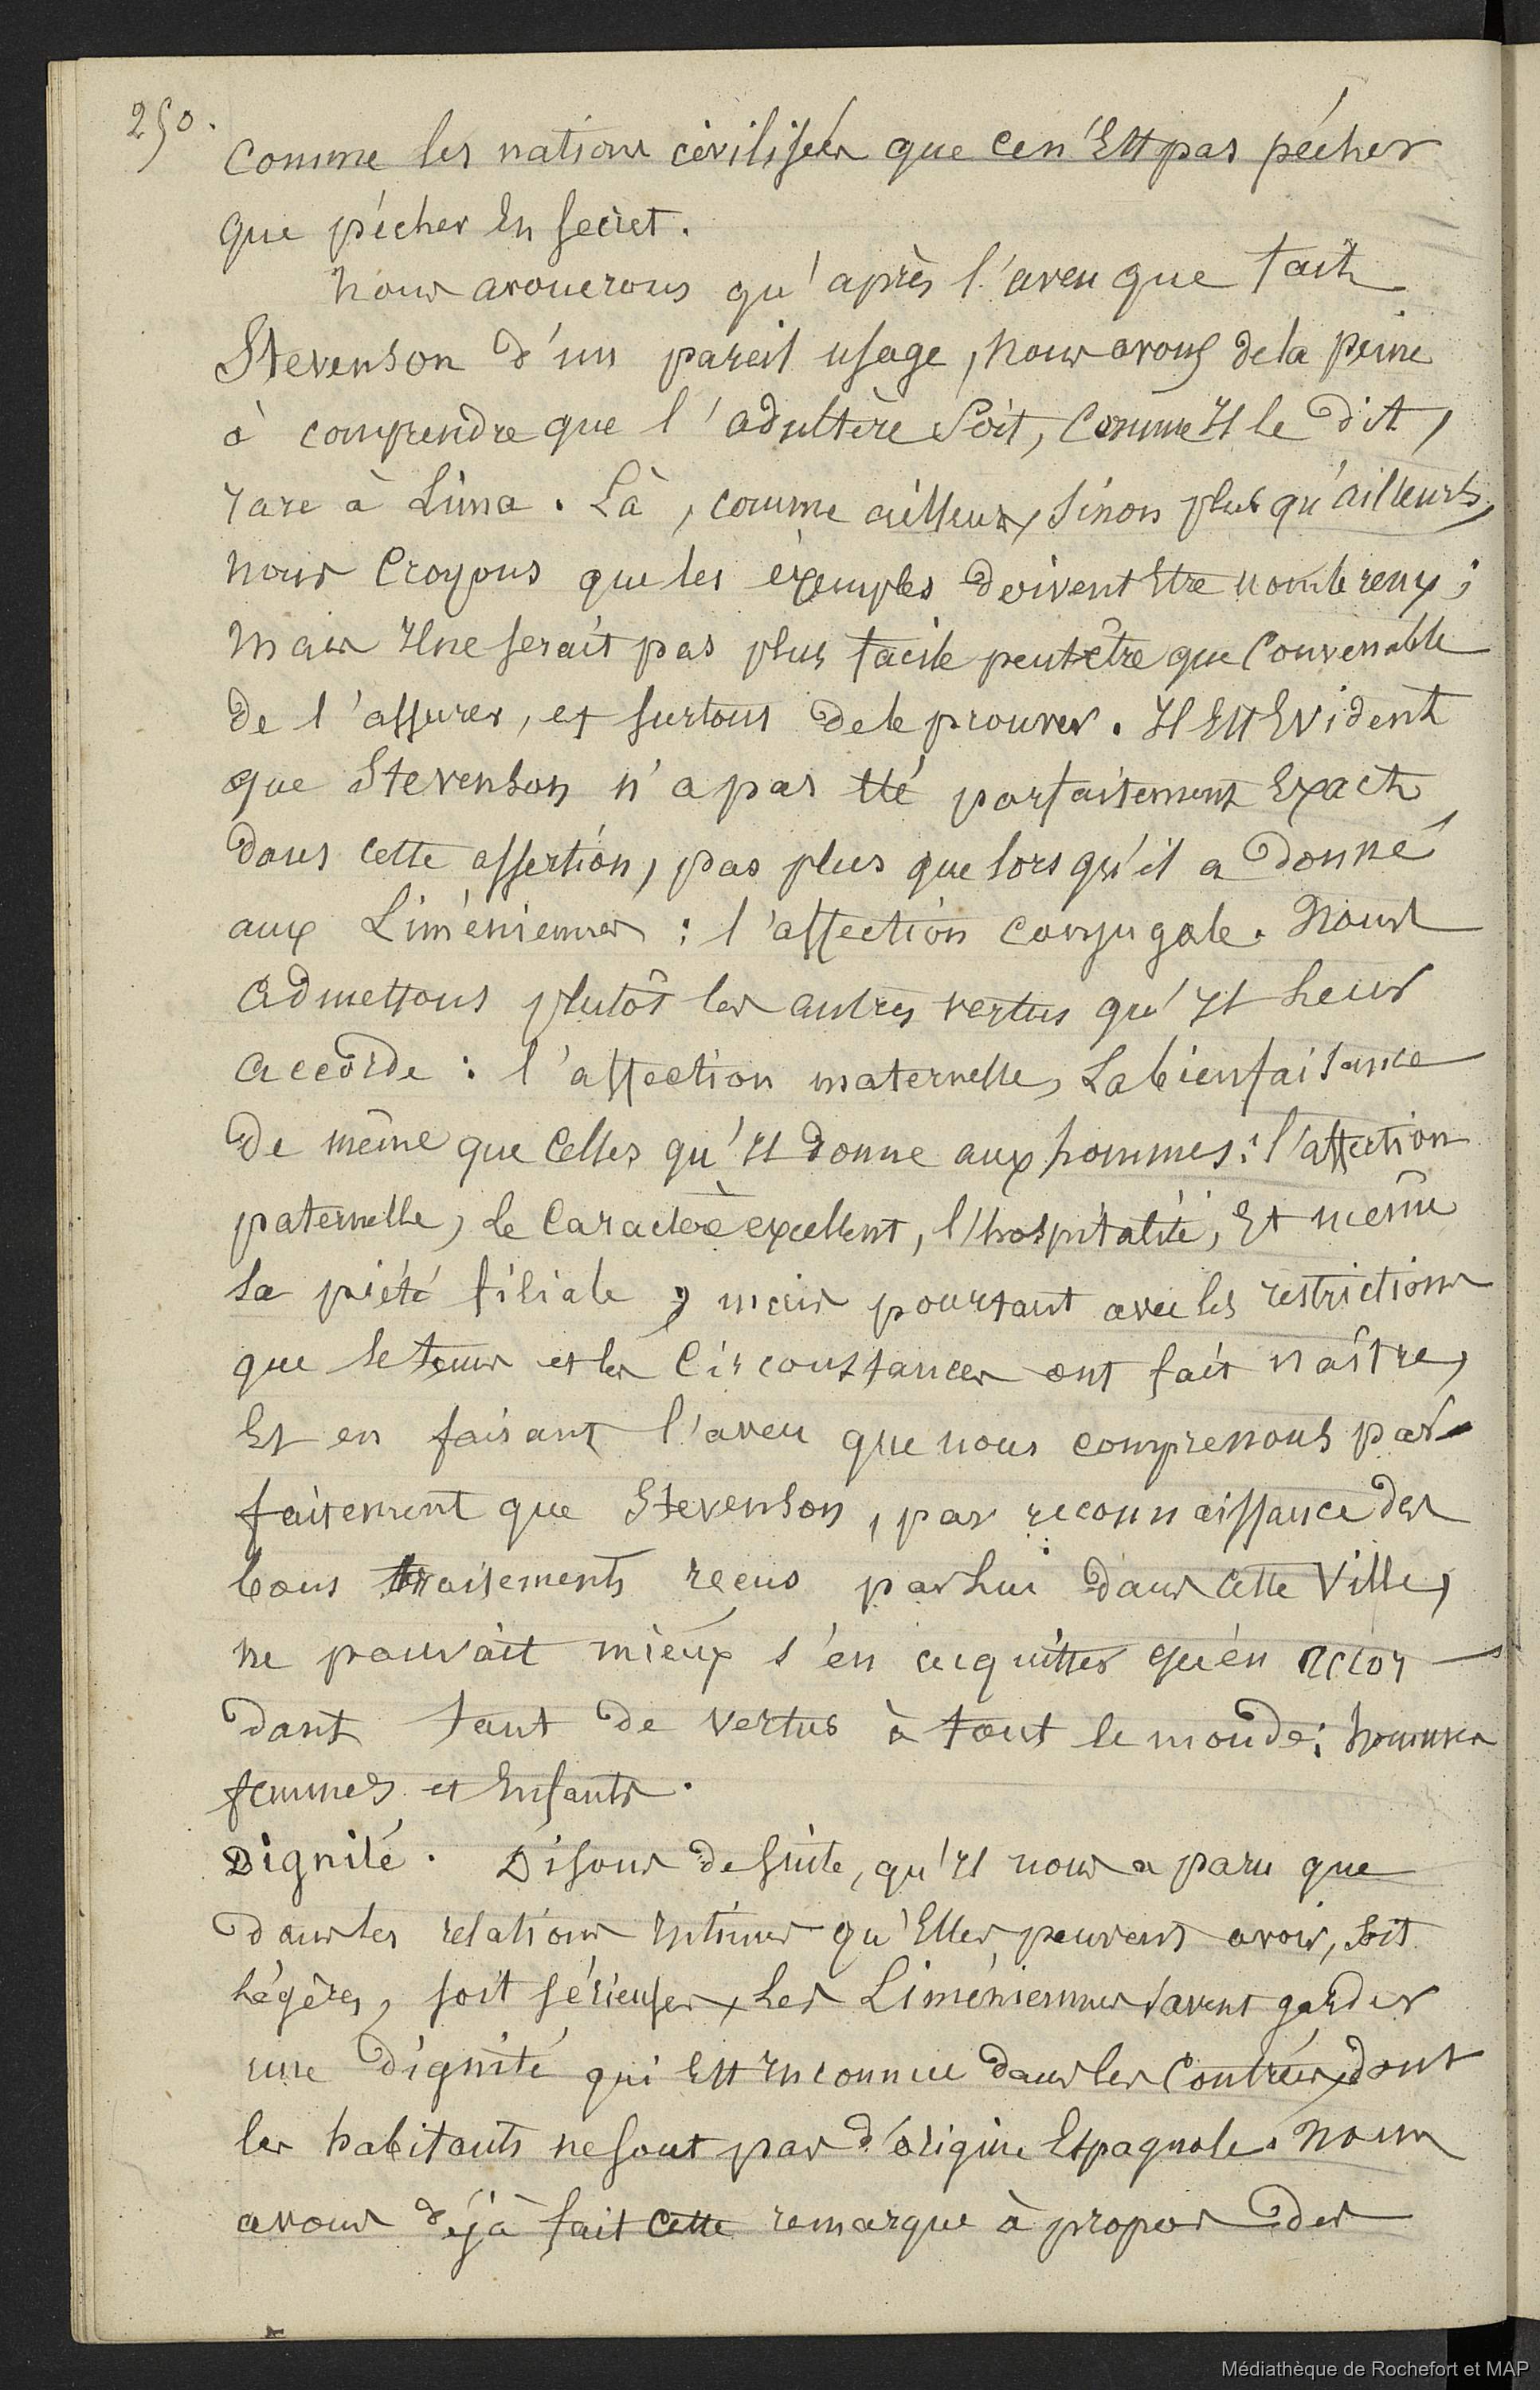 250.
comme les nations civilisées que ce n'Est pas pécher
que pécher En secret.
Nous avouerons qu'après l'aveu que fait
Stevenson d'un pareil usage, nous avons de la peine
à comprendre que l'adultère soit, comme Il le dit,
rare à Lima. Là, comme ailleurs, sinon plus qu'ailleurs,
nous croyons que les exemples doivent Etre nombreux;
mais Il ne serait pas plus facile peut être que convenable
de l'assurer, et surtout de le prouver. Il Est Evident
que Stevenson n'a pas été parfaitement Exact
dans cette assertion, pas plus que lorsqu'il a donné
aux Liméniennes : l'affection conjugale. Nous
admettons plutôt les autres vertus qu'Il Leur
accorde : l'affection maternelle, La bienfaisance
de même que celles qu'Il donne aux hommes : l'affection
paternelle, Le caractère excellent, l'hospitalité, Et même
la piété filiale, mais pourtant avec les restrictions
que le tems et les circonstances ont fait naître,
Et en faisant l'aveu que nous comprenons par-
faitement que Stevenson, par reconnaissance des
bons traitements reçus par Lui dans cette Ville,
ne pouvait mieux s'en acquitter qu'en accor-
dant tant de vertus à tout le monde; hommes
femmes et Enfants.
Dignité. Disons de suite, qu'Il nous a paru que
dans les relations Intimes qu'Elles peuvent avoir, soit
Légères, soit sérieuses, Les Liméniennes savent garder
une dignité qui Est Inconnue dans les contrées dont
les habitants ne sont pas d'origine Espagnole. Nous
avons déjà fait cette remarque à propos des
Médiathèque de Rochefort et MAP